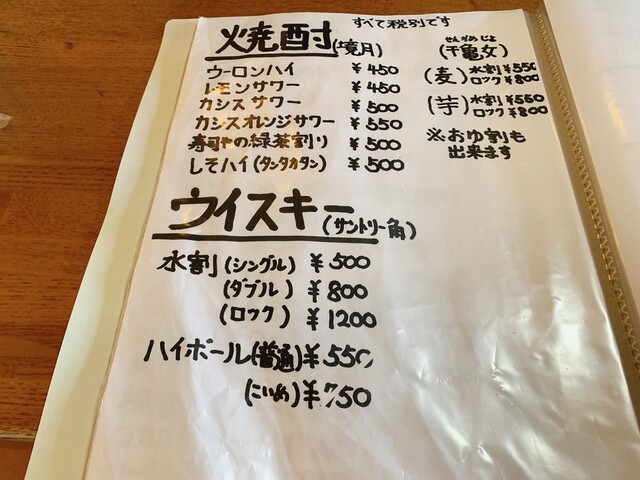 すべて税別です
焼酎(鏡月)
ウーロンハイ ¥450
レモンサワー ¥450
カシスサワー ¥500
カシスオレンジサワー ¥550
寿司やの緑茶割り ¥500
しそハイ(タンタカタン) ¥500
せんかめじょ
(千亀女)
(麦)水割¥550
ロック¥800
(芋)水割¥550
ロック¥800
※おゆ割も
出来ます
ウイスキー(サントリー角)
水割(シングル) ¥500
(ダブル) ¥800
(ロック) ¥1200
ハイボール(普通)¥550
(こいめ)¥750